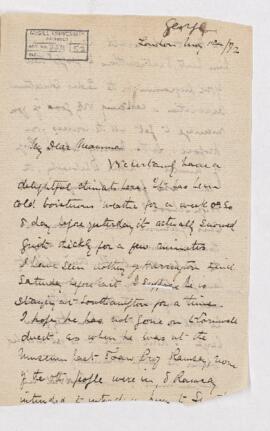 George
McGILL UNIVERSITY
ARCHIVES
ACC. NO.
REF.
London May
My Dear Mamma
We certainly have a
delightful climate here. It has been
cold boisterous weather for a week or so
& day before yesterday it actually snowed
quite thickly for a few minutes
I have seen nothing of Harrington since
Saturday before last. I suppose he is
staying at Southampton for a time.
I hope he has not gone on to Cornwall
direct, as when he was at the
Museum last Tom Brig Ramsay, none
of the other people were in, & Ramsay
intended to